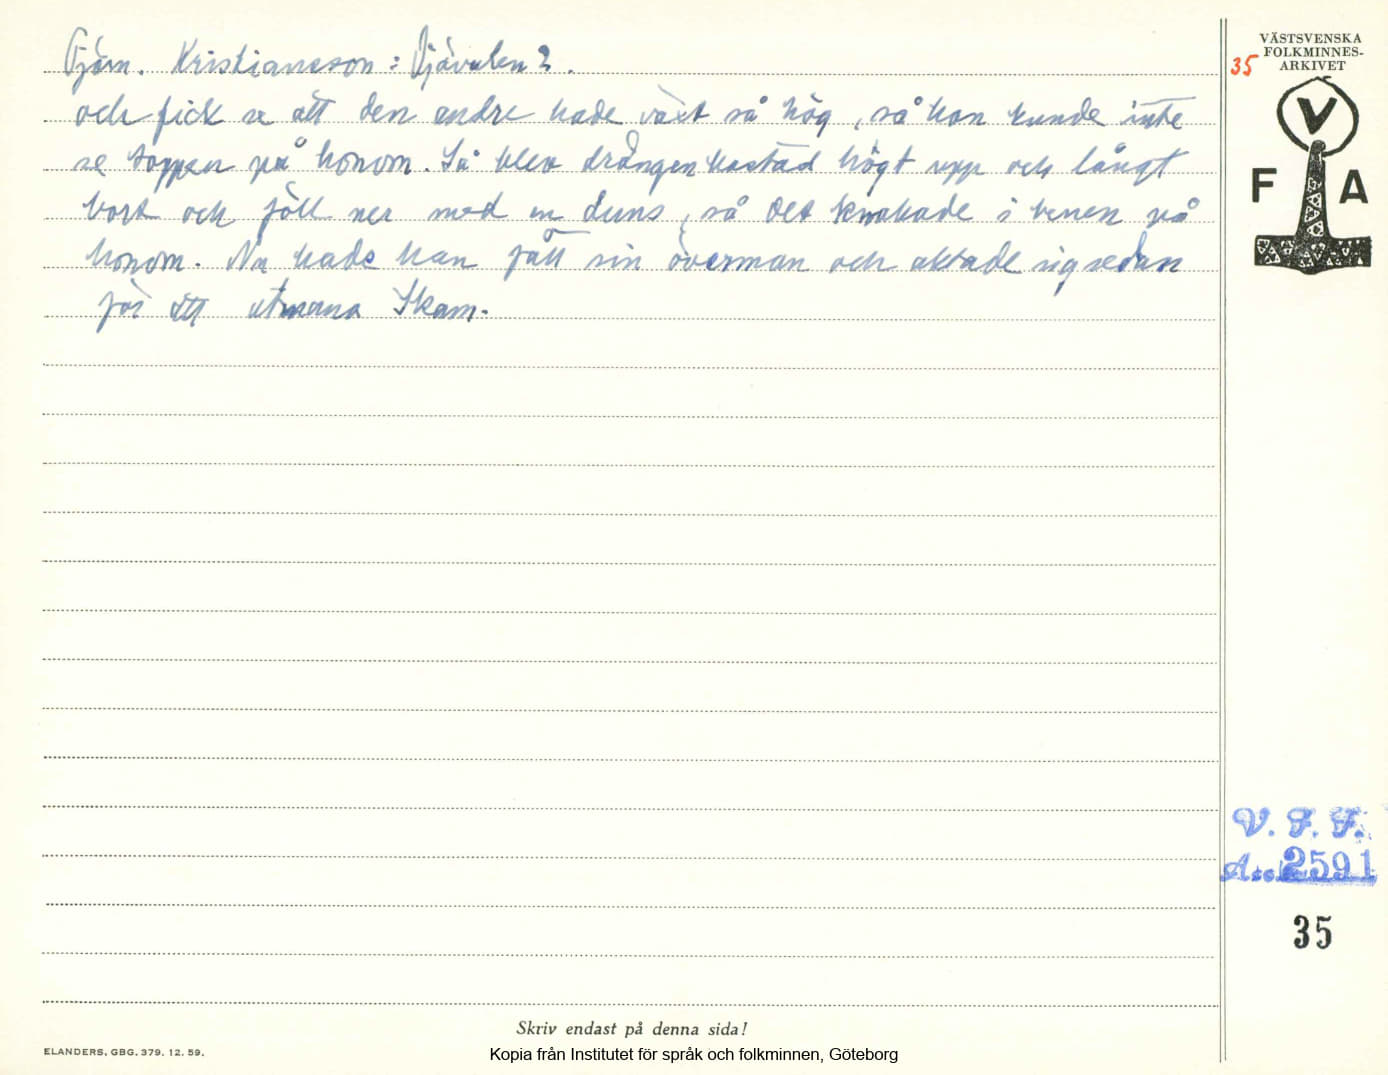 Tjörn. Kristiansson: Djävulen 2.
och fick se att den andre hade växt så hög, så han kunde inte
se toppen på honom. Så blev drången kastad högt upp och långt
bort och föll ner med en duns, så det knakade i benen på
honom. Nu hade han fått sin överman och aktade sig sedan
för att utmana Skam.
VÄSTSVENSKA
FOLKMINNES-
ARKIVET
35
V
F A
V. F. F.
Acc. 2591
35
Skriv endast på denna sida!
ELANDERS. GBG. 379. 12. 59.
Kopia från Institutet för språk och folkminnen, Göteborg